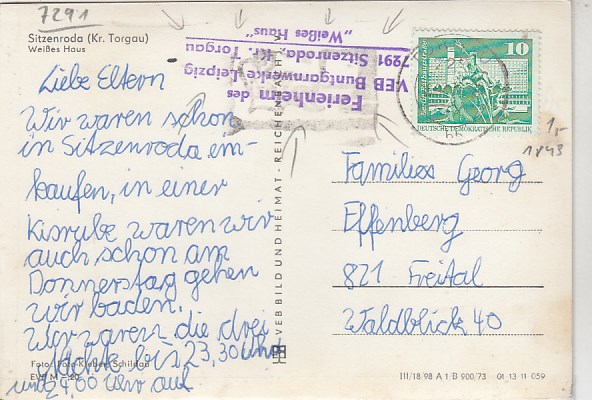 7291
Sitzenroda (Kr. Torgau)
Weißes Haus
Liebe Eltern
Wir waren schon
in Sitzenroda ein-
kaufen, in einer
Kisgrube waren wir
auch schon am
Donnerstag gehen
wir baden.
Wir waren die drei
Nächte bis 23,30 Uhr
und 24,00 Uhr auf
Foto: Foto-Kleber, Schildau
EVP M –,20
Ferienheim des
VEB Buntgarnwerke Leipzig
7291 Sitzenroda, Kr. Torgau
„Weißes Haus"
VEB BILD UND HEIMAT · REICHENBACH i. V.
10
DEUTSCHE DEMOKRATISCHE REPUBLIK
1,-
1843
Families Georg
Effenberg
821 Freital
Waldblick 40
III/18/98 A 1 B 900/73 01 13 11 059